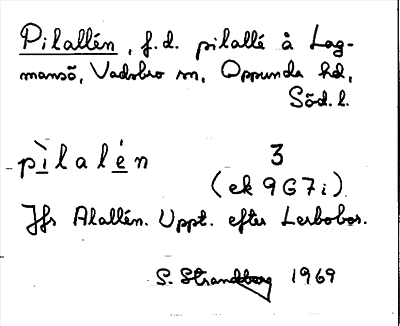 Pilallén, f.d. pilallé å Lag-
mansö, Vadsbro sn, Oppunda hd,
Söd. l.
pìlalén 3
(ek 9G7i).
Jfr Alallén. Uppt. efter Lerbobor.
S. Strandberg 1969